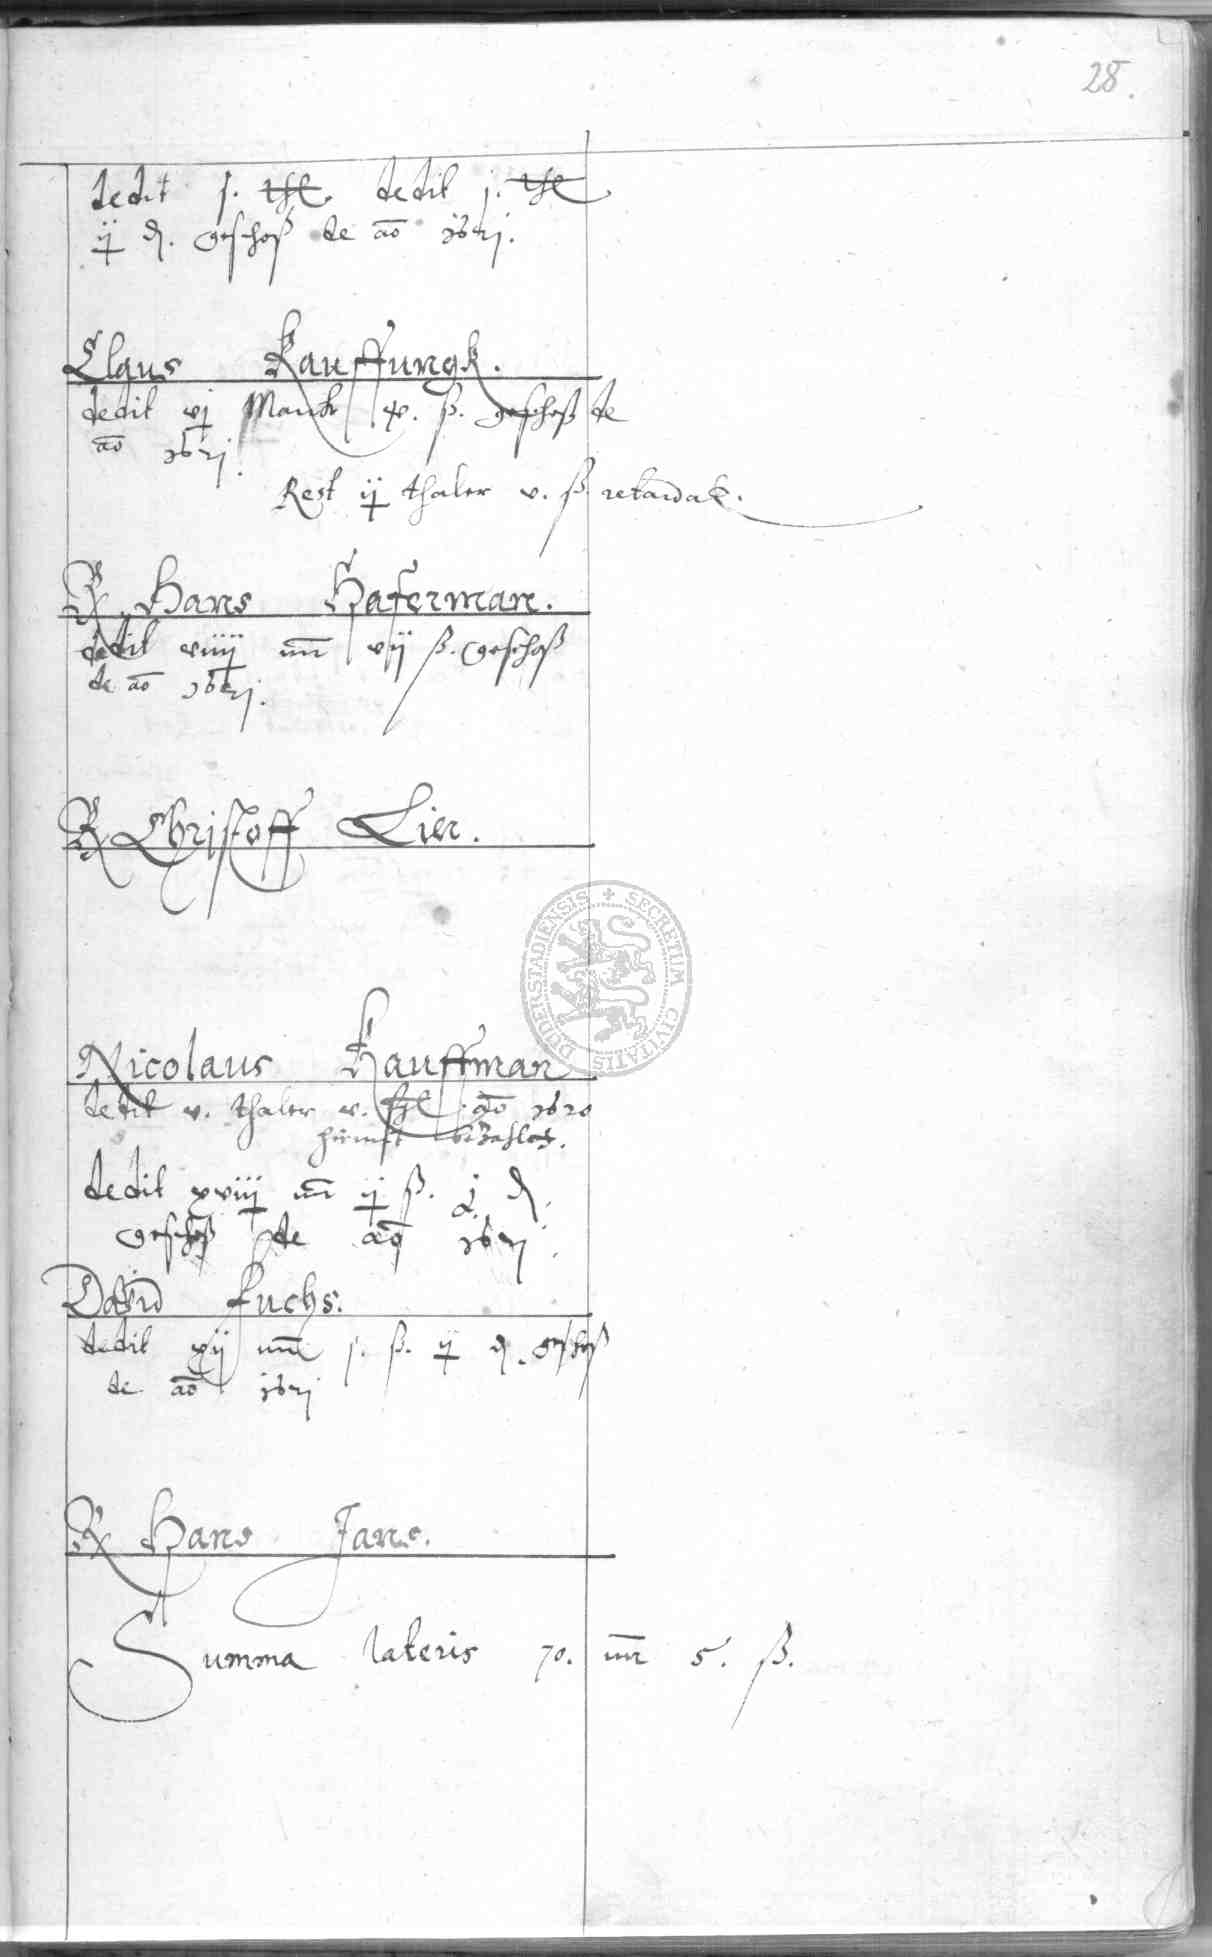 28.
dedit j. thl. dedit j. thl
ij d. geschoß de ao 1621.
Claus Kauffungk.
dedit vj Marck iv. ß. geschoß de
ao 1621.
Rest ij thaler v. ß. retardat.
Hans Haferman.
dedit viiij mr vij ß. geschoß
de ao 1621.
Christoff Lier.
Nicolaus Kauffman
dedit v. thaler v. ßl ao 1620
hirmit bezahlet.
dedit xviij mr ij ß. j d.
geschoß de ao 1621.
David Fuchs.
dedit xij mr j. ß. ij d. geschoß
de ao 1621
Hans Jans.
Summa lateris 70. mr 5. ß.
SECRETUM CIVITATIS DUDERSTADIENSIS